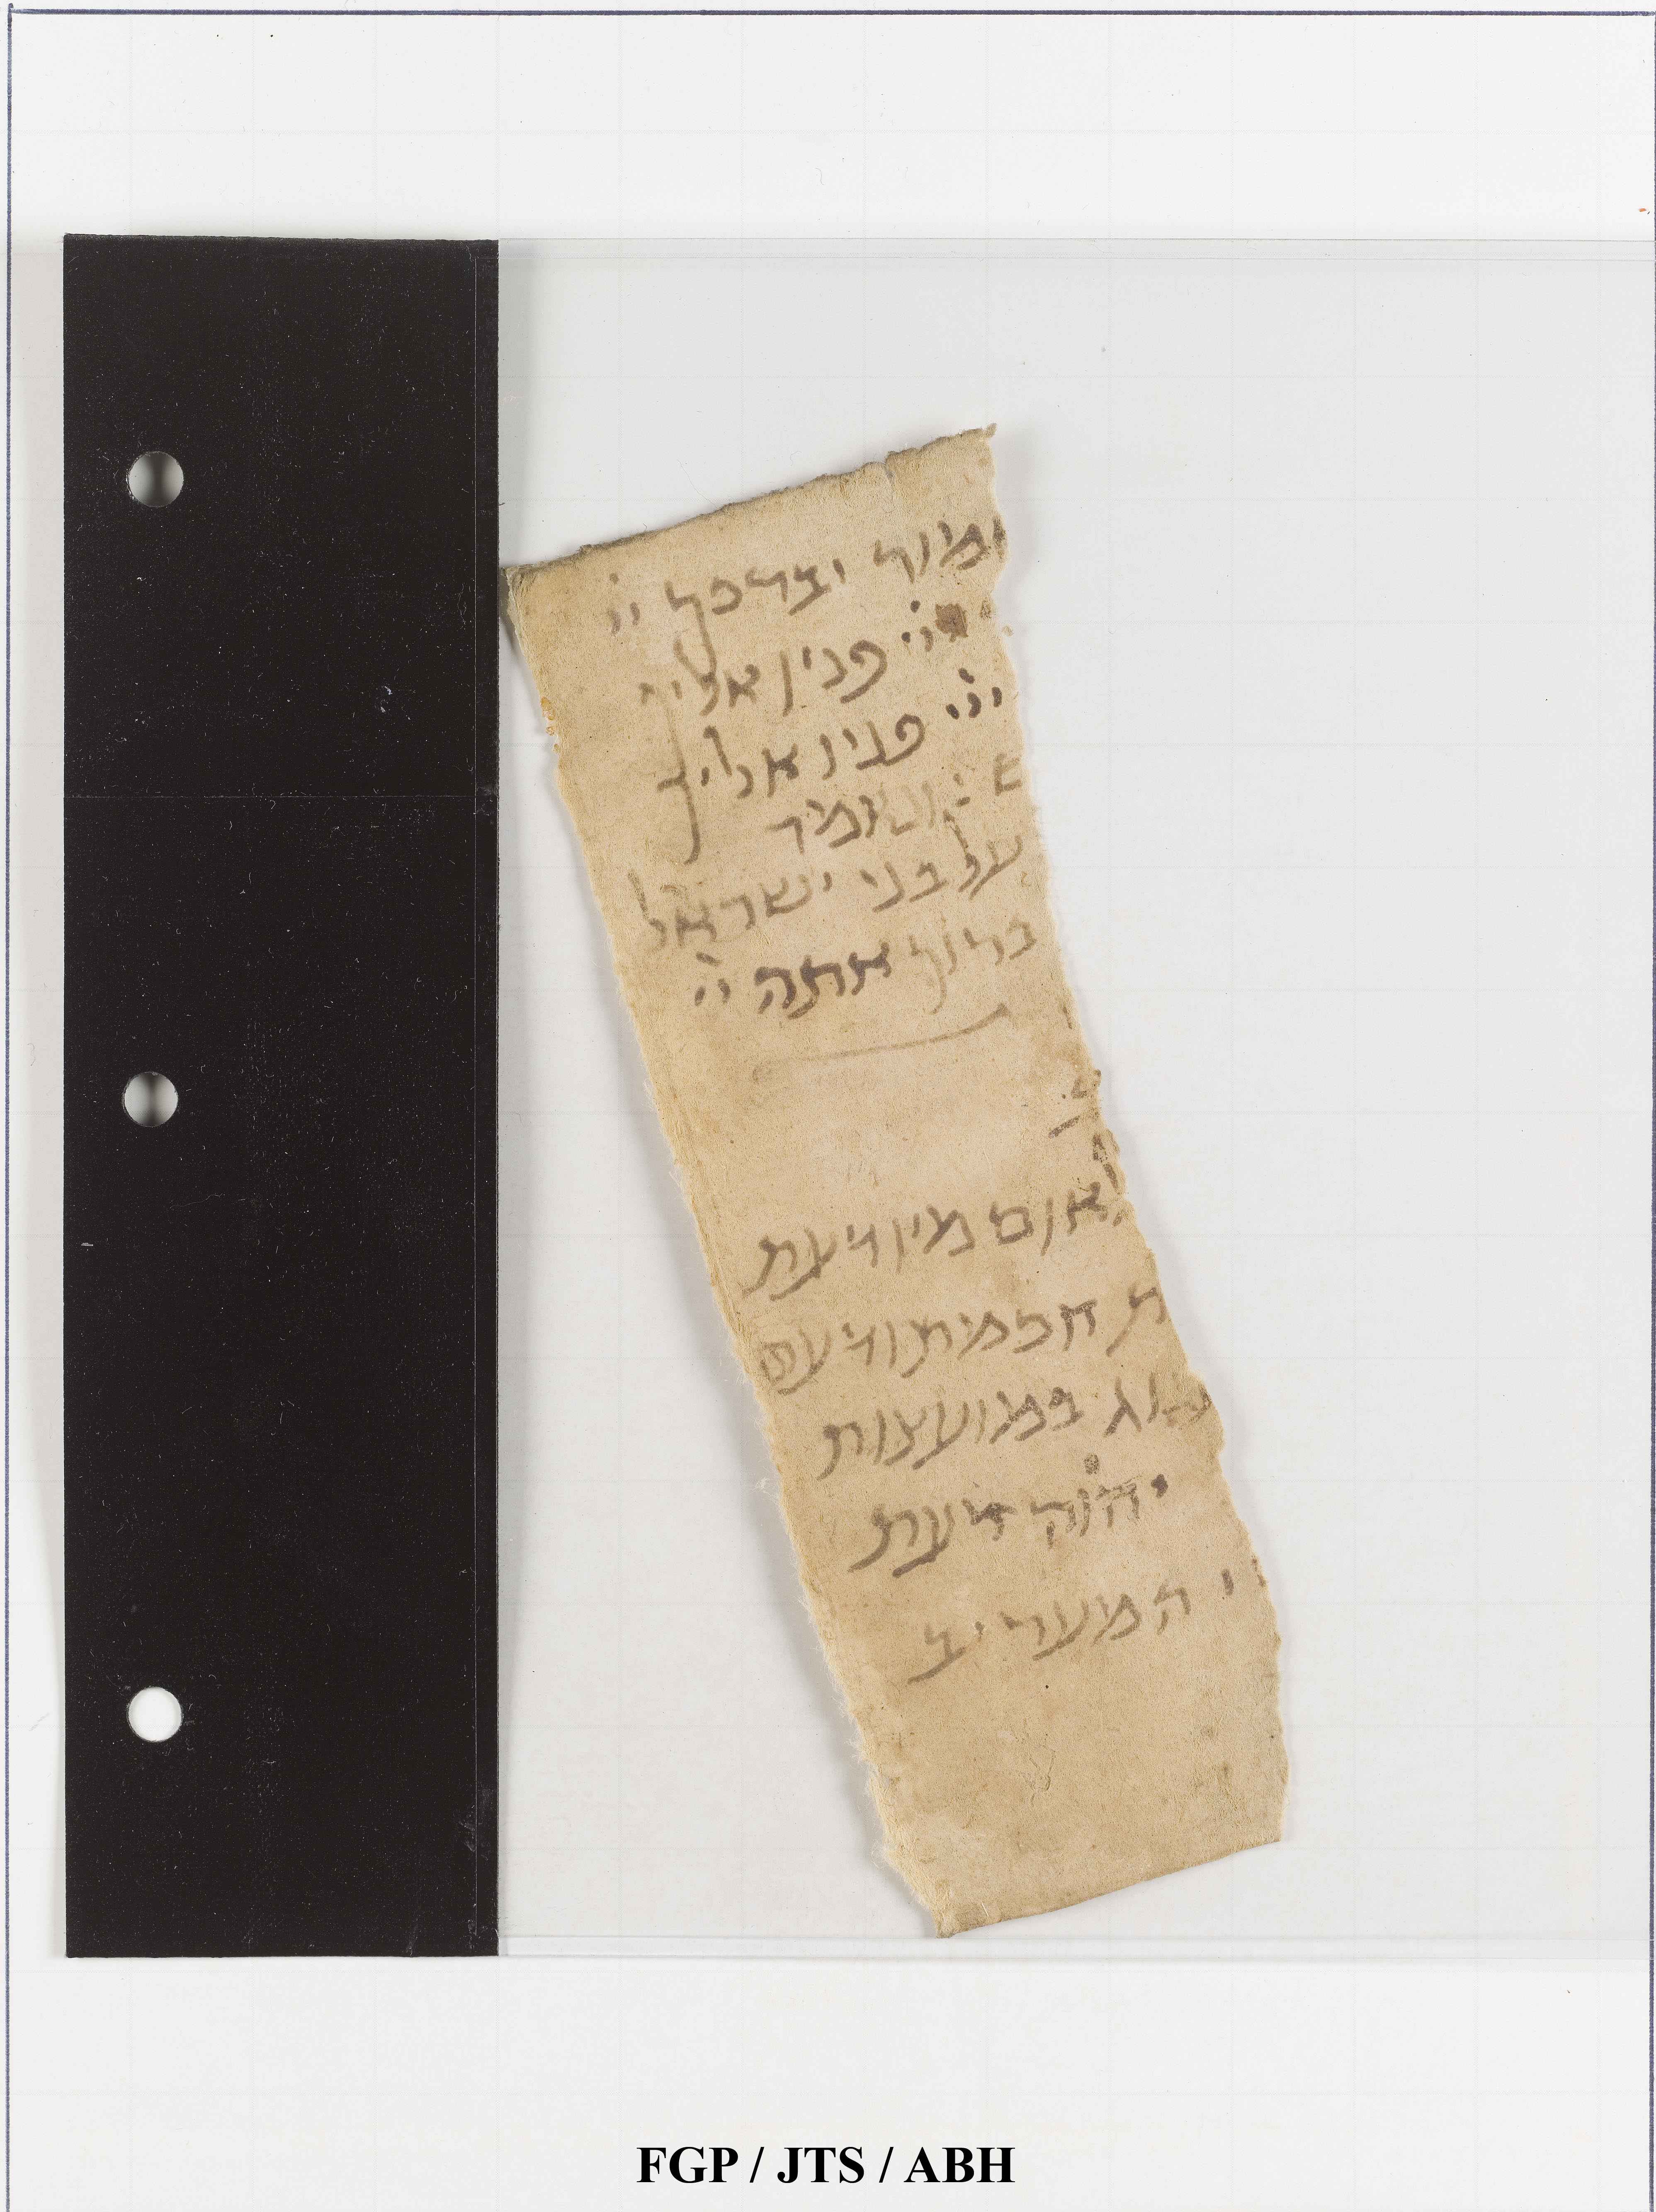 ומור יברכך יי
ייי פניו אליך
ייי פניו אליך
ש
על בני ישראל
ברוך אתה יי
לאום מיודעת
ת חכמית ודעה
במועצות
יהוה דעת
י המעריב
FGP / JTS / ABH